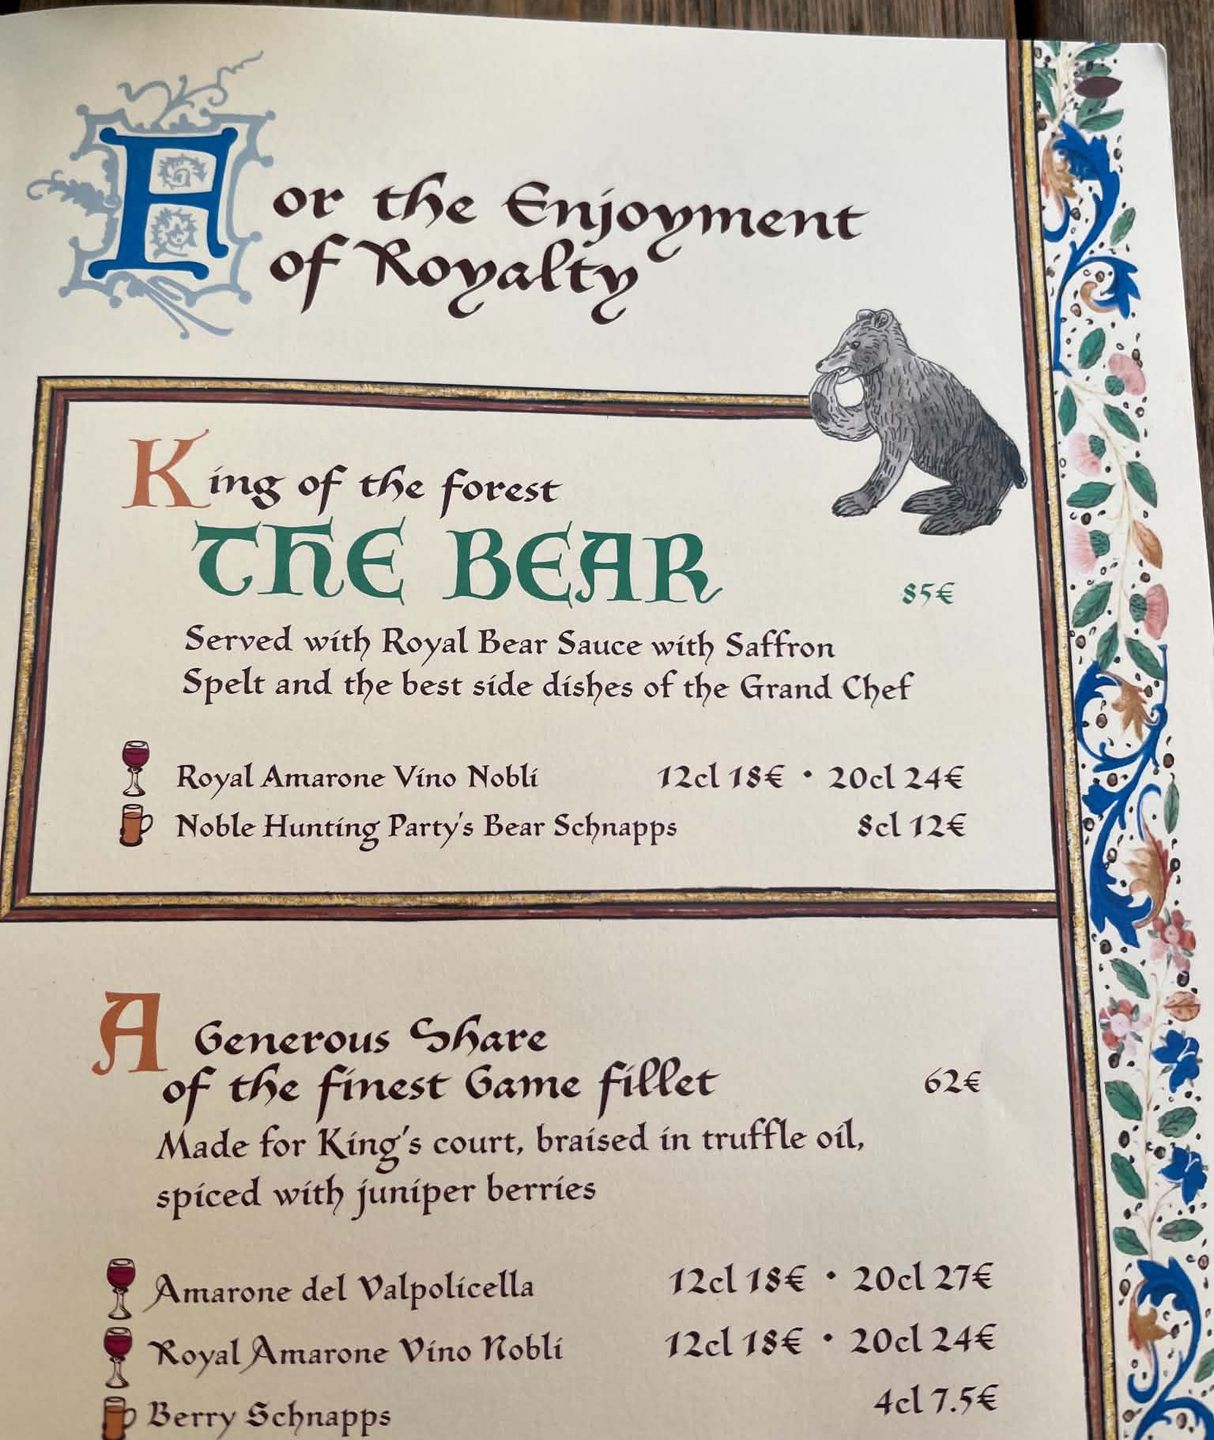 For the Enjoyment
of Royalty
King of the forest
THE BEAR
85€
Served with Royal Bear Sauce with Saffron
Spelt and the best side dishes of the Grand Chef
Royal Amarone Vino Nobli 12cl 18€ • 20cl 24€
Noble Hunting Party's Bear Schnapps 8cl 12€
A Generous Share
of the finest Game fillet 62€
Made for King's court, braised in truffle oil,
spiced with juniper berries
Amarone del Valpolicella 12cl 18€ • 20cl 27€
Royal Amarone Vino Nobli 12cl 18€ • 20cl 24€
Berry Schnapps 4cl 7.5€